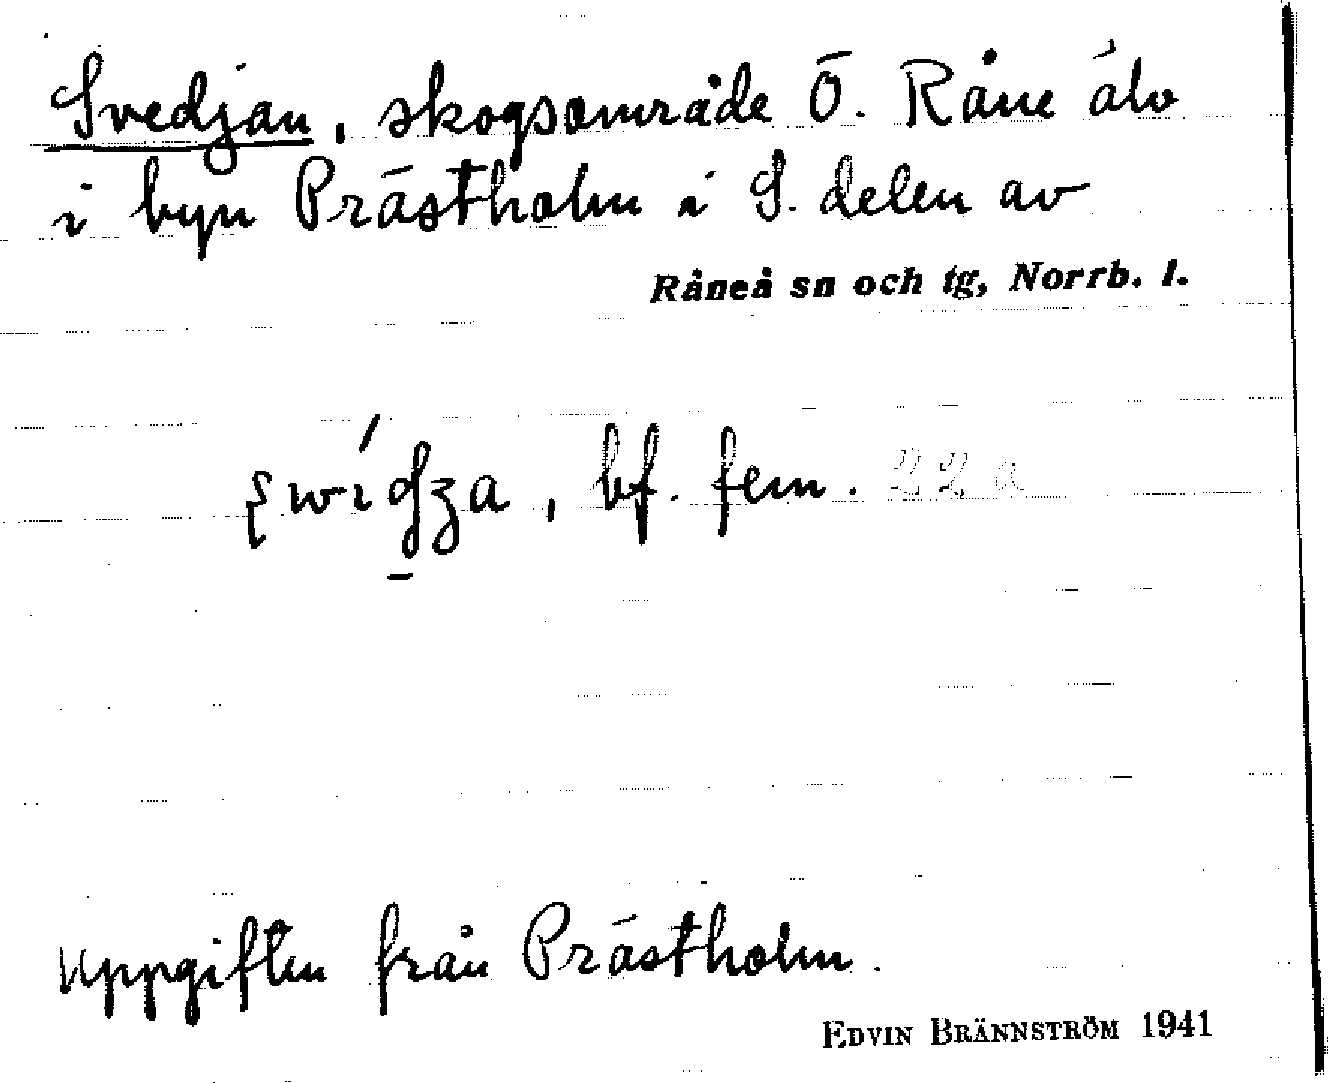 Svedjan, skogsområde Ö. Råne älv
i byn Prästholm i S. delen av
Råneå sn och tg, Norrb. l.
bf. fem. 22a
Uppgiften från Prästholm.
EDVIN BRÄNNSTRÖM 1941